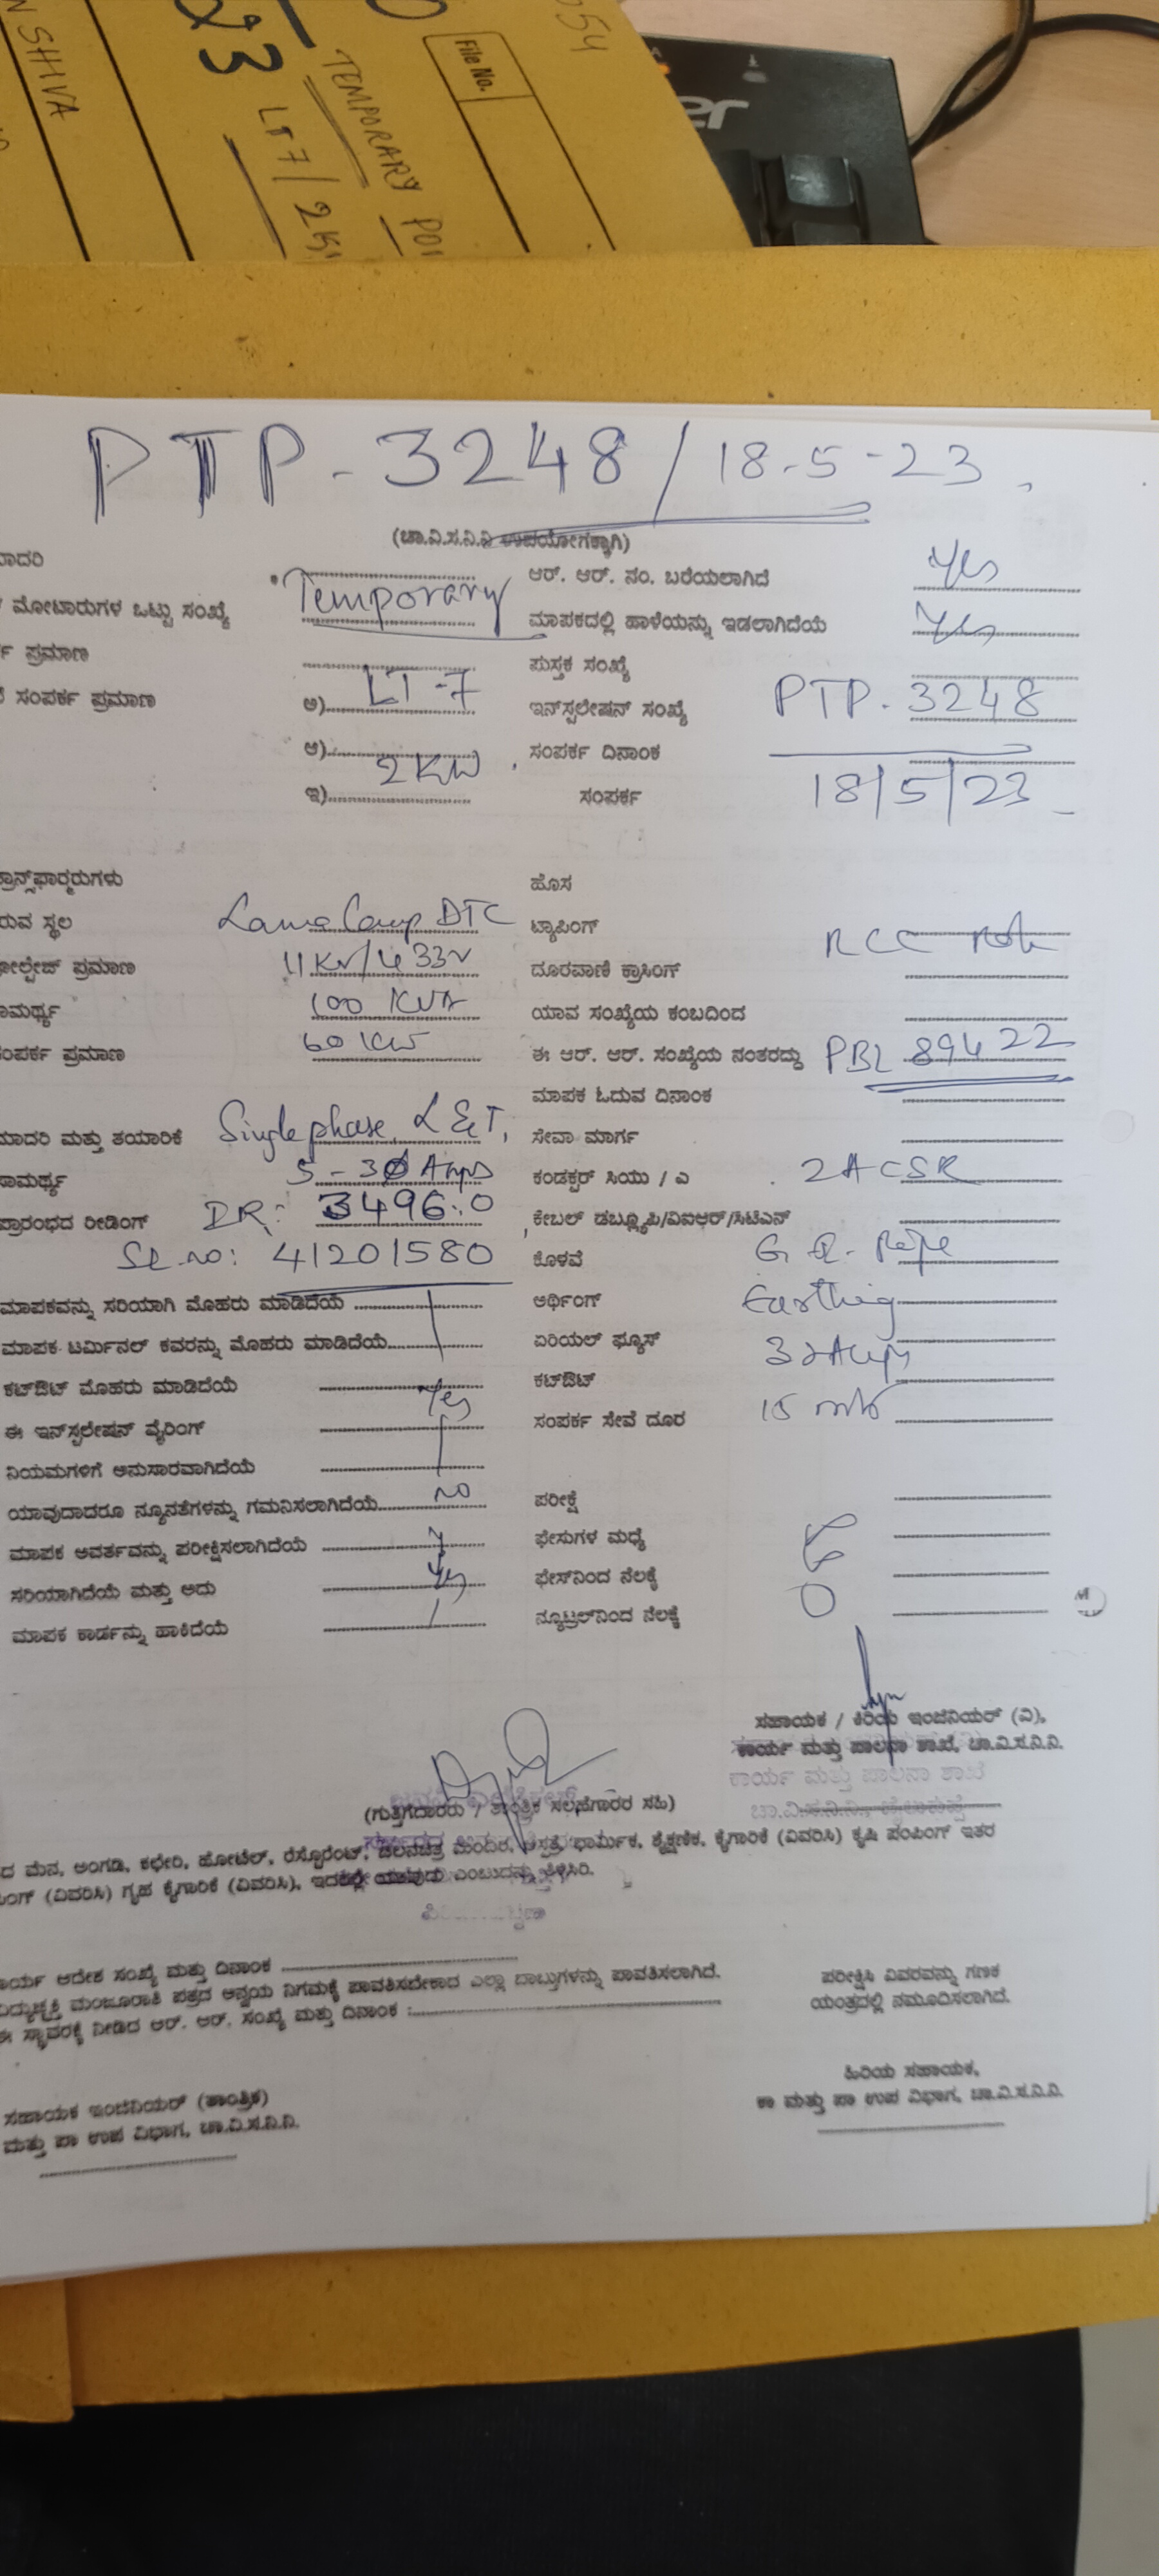 SHIVA
23
LT 7/2
TEMPORARY
File No.
PTP-3248/18-5-23
(ಚಾ.ವಿ.ಸ.ನಿ.ನಿ ಉಪಯೋಗಕ್ಕಾಗಿ)
ಆರ್. ಆರ್. ನಂ. ಬರೆಯಲಾಗಿದೆ Yes
ಮೋಟಾರುಗಳ ಒಟ್ಟು ಸಂಖ್ಯೆ Temporary ಮಾಪಕದಲ್ಲಿ ಹಾಳೆಯನ್ನು ಇಡಲಾಗಿದೆಯೆ Yes
ಪ್ರಮಾಣ ಪುಸ್ತಕ ಸಂಖ್ಯೆ
ಸಂಪರ್ಕ ಪ್ರಮಾಣ ಅ) LT-7 ಇನ್‌ಸ್ಟಲೇಷನ್ ಸಂಖ್ಯೆ PTP-3248
ಆ) 2KW ಸಂಪರ್ಕ ದಿನಾಂಕ
ಇ) ಸಂಪರ್ಕ 18/5/23
ಹೊಸ
ಸ್ಥಲ DTC ಟ್ಯಾಪಿಂಗ್ RCC
ಪ್ರಮಾಣ 11KV/433V ದೂರವಾಣಿ ಕ್ರಾಸಿಂಗ್
100 KVA ಯಾವ ಸಂಖ್ಯೆಯ ಕಂಬದಿಂದ
ಪ್ರಮಾಣ 60KW ಈ ಆರ್. ಆರ್. ಸಂಖ್ಯೆಯ ನಂತರದ್ದು PBL 89422
ಮಾಪಕ ಓದುವ ದಿನಾಂಕ
ಮತ್ತು ತಯಾರಿಕೆ Single phase, L&T, ಸೇವಾ ಮಾರ್ಗ
5-30 Amps ಕಂಡಕ್ಟರ್ ಸಿಯು / ಎ 2 ACSR
ಪ್ರಾರಂಭದ ರೀಡಿಂಗ್ 3496.0 ಕೇಬಲ್ ಡಬ್ಲ್ಯೂಪಿ/ವಿಐಆರ್/ಸಿಟಿಎಸ್
Sl.no: 41201580 ಕೊಳವೆ
ಮಾಪಕವನ್ನು ಸರಿಯಾಗಿ ಮೊಹರು ಮಾಡಿದೆಯೆ ಅರ್ಥಿಂಗ್ Earthing
ಮಾಪಕ ಟರ್ಮಿನಲ್ ಕವರನ್ನು ಮೊಹರು ಮಾಡಿದೆಯೆ ಏರಿಯಲ್ ಫ್ಯೂಸ್
ಕಟ್‌ಔಟ್ ಮೊಹರು ಮಾಡಿದೆಯೆ Yes ಕಟ್‌ಔಟ್
ಈ ಇನ್‌ಸ್ಟಲೇಷನ್ ವೈರಿಂಗ್ ಸಂಪರ್ಕ ಸೇವೆ ದೂರ 15
ನಿಯಮಗಳಿಗೆ ಅನುಸಾರವಾಗಿದೆಯೆ
ಯಾವುದಾದರೂ ನ್ಯೂನತೆಗಳನ್ನು ಗಮನಿಸಲಾಗಿದೆಯೆ no ಪರೀಕ್ಷೆ
ಮಾಪಕ ಅವರ್ತವನ್ನು ಪರೀಕ್ಷಿಸಲಾಗಿದೆಯೆ ಫೇಸುಗಳ ಮಧ್ಯೆ
ಸರಿಯಾಗಿದೆಯೆ ಮತ್ತು ಅದು Yes ಫೇಸ್‌ನಿಂದ ನೆಲಕ್ಕೆ
ಮಾಪಕ ಕಾರ್ಡನ್ನು ಹಾಕಿದೆಯೆ ನ್ಯೂಟ್ರಲ್‌ನಿಂದ ನೆಲಕ್ಕೆ 0
ಸಹಾಯಕ / ಕಿರಿಯ ಇಂಜಿನಿಯರ್ (ವಿ),
ಕಾರ್ಯ ಮತ್ತು ಪಾಲನಾ ಶಾಖೆ, ಚಾ.ವಿ.ಸ.ನಿ.ನಿ.
ಕಾರ್ಯ ಮತ್ತು ಪಾಲನಾ ಶಾಖೆ
(ಗುತ್ತಿಗೆದಾರರು / ತಾಂತ್ರಿಕ ಸಲಹೆಗಾರರ ಸಹಿ)
ಮನೆ, ಅಂಗಡಿ, ಕಛೇರಿ, ಹೋಟೆಲ್, ರೆಸ್ಟೋರೆಂಟ್, ಚಲನಚಿತ್ರ ಮಂದಿರ, ಆಸ್ಪತ್ರೆ, ಧಾರ್ಮಿಕ, ಶೈಕ್ಷಣಿಕ, ಕೈಗಾರಿಕೆ (ವಿವರಿಸಿ) ಕೃಷಿ ಪಂಪಿಂಗ್ ಇತರ
(ವಿವರಿಸಿ) ಗೃಹ ಕೈಗಾರಿಕೆ (ವಿವರಿಸಿ), ಇದರಲ್ಲಿ ಯಾವುದು ಎಂಬುದನ್ನು ತಿಳಿಸಿರಿ.
ಆದೇಶ ಸಂಖ್ಯೆ ಮತ್ತು ದಿನಾಂಕ
ವಿದ್ಯುಚ್ಛಕ್ತಿ ಮಂಜೂರಾತಿ ಪತ್ರದ ಅನ್ವಯ ನಿಗಮಕ್ಕೆ ಪಾವತಿಸಬೇಕಾದ ಎಲ್ಲಾ ಬಾಬ್ತುಗಳನ್ನು ಪಾವತಿಸಲಾಗಿದೆ. ಪರೀಕ್ಷಿಸಿ ವಿವರವನ್ನು ಗಣಕ
ಈ ಸ್ಥಾವರಕ್ಕೆ ನೀಡಿದ ಆರ್. ಆರ್. ಸಂಖ್ಯೆ ಮತ್ತು ದಿನಾಂಕ : ಯಂತ್ರದಲ್ಲಿ ನಮೂದಿಸಲಾಗಿದೆ.
ಸಹಾಯಕ ಇಂಜಿನಿಯರ್ (ತಾಂತ್ರಿಕ) ಹಿರಿಯ ಸಹಾಯಕ,
ಮತ್ತು ಪಾ ಉಪ ವಿಭಾಗ, ಚಾ.ವಿ.ಸ.ನಿ.ನಿ. ಕಾ ಮತ್ತು ಪಾ ಉಪ ವಿಭಾಗ, ಚಾ.ವಿ.ಸ.ನಿ.ನಿ.